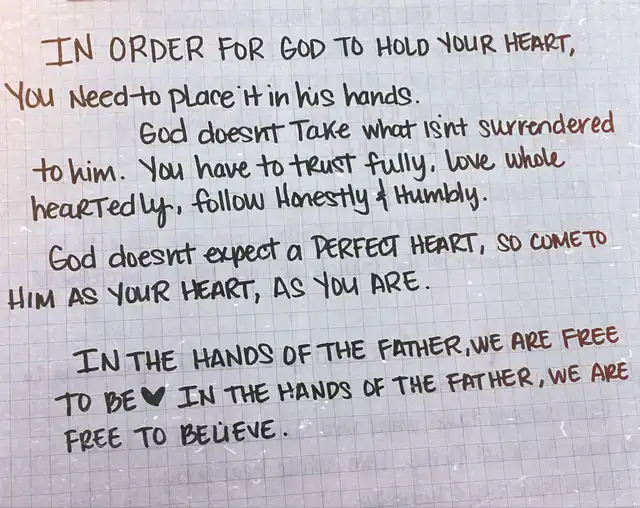 IN ORDER FOR GOD TO HOLD YOUR HEART,
You Need to place it in his hands.
God doesnt Take what isnt surrendered
to him. You have to trust fully, love whole
heartedly, follow Honestly & Humbly.
God doesnt expect a PERFECT HEART, SO COME TO
HIM AS YOUR HEART, AS YOU ARE.
IN THE HANDS OF THE FATHER, WE ARE FREE
TO BE ♥ IN THE HANDS OF THE FATHER, WE ARE
FREE TO BELIEVE.